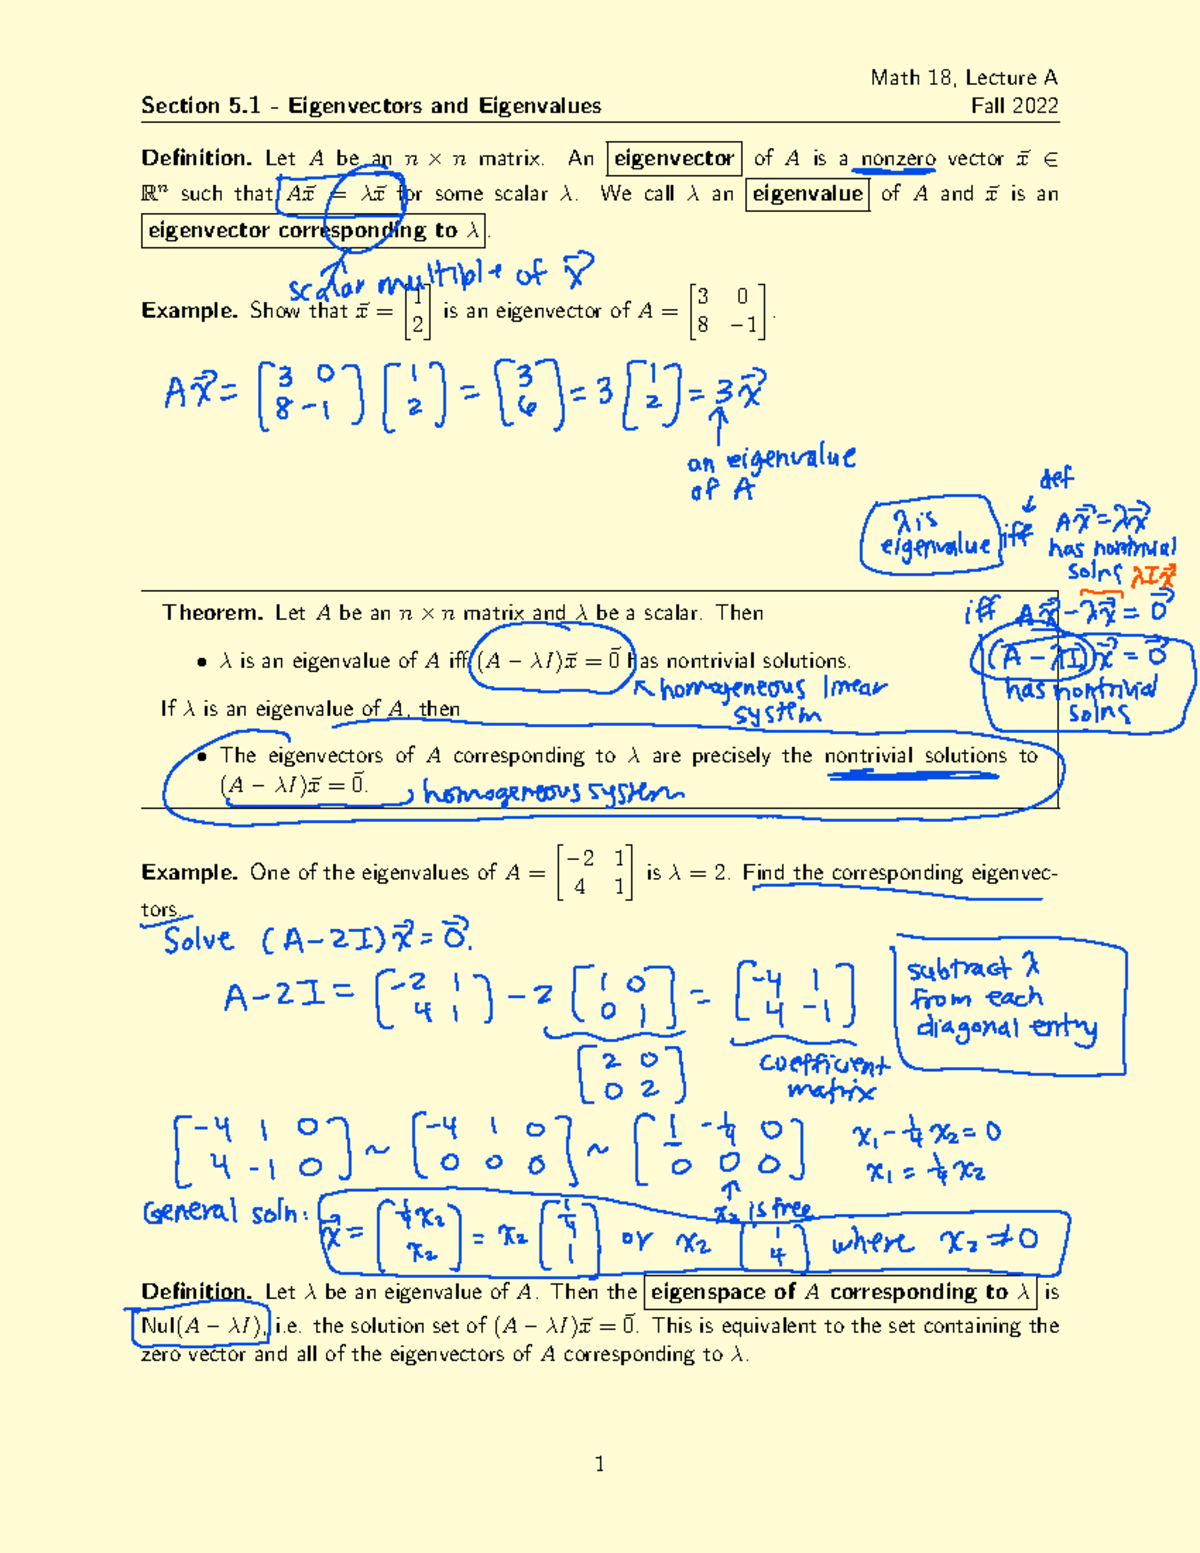 Math 18, Lecture A
Section 5.1 - Eigenvectors and Eigenvalues Fall 2022
Definition. Let A be an n × n matrix. An eigenvector of A is a nonzero vector x⃗ ∈
ℝⁿ such that Ax⃗ = λx⃗ for some scalar λ. We call λ an eigenvalue of A and x⃗ is an
eigenvector corresponding to λ.
scalar multiple of x⃗
Example. Show that x⃗ = [1; 2] is an eigenvector of A = [3 0; 8 −1].
Ax⃗ = [3 0; 8 -1] [1; 2] = [3; 6] = 3 [1; 2] = 3x⃗
an eigenvalue
of A
def
λ is eigenvalue iff Ax⃗ = λx⃗
has nontrivial
solns λIx⃗
iff Ax⃗ - λx⃗ = 0⃗
(A - λI)x⃗ = 0⃗
has nontrivial
solns
Theorem. Let A be an n × n matrix and λ be a scalar. Then
• λ is an eigenvalue of A iff (A − λI)x⃗ = 0⃗ has nontrivial solutions.
homogeneous linear
system
If λ is an eigenvalue of A, then
• The eigenvectors of A corresponding to λ are precisely the nontrivial solutions to
(A − λI)x⃗ = 0⃗.
homogeneous system
Example. One of the eigenvalues of A = [−2 1; 4 1] is λ = 2. Find the corresponding eigenvec-
tors.
Solve (A-2I)x⃗ = 0⃗.
A-2I = [-2 1; 4 1] - 2 [1 0; 0 1] = [-4 1; 4 -1]
subtract λ
from each
diagonal entry
[2 0; 0 2]
coefficient
matrix
[-4 1 0; 4 -1 0] ~ [-4 1 0; 0 0 0] ~ [1 -1/4 0; 0 0 0]
x₁ - 1/4 x₂ = 0
x₁ = 1/4 x₂
x₂ is free
General soln: x⃗ = [1/4 x₂; x₂] = x₂ [1/4; 1] or x₂ [1; 4] where x₂ ≠ 0
Definition. Let λ be an eigenvalue of A. Then the eigenspace of A corresponding to λ is
Nul(A − λI), i.e. the solution set of (A − λI)x⃗ = 0⃗. This is equivalent to the set containing the
zero vector and all of the eigenvectors of A corresponding to λ.
1